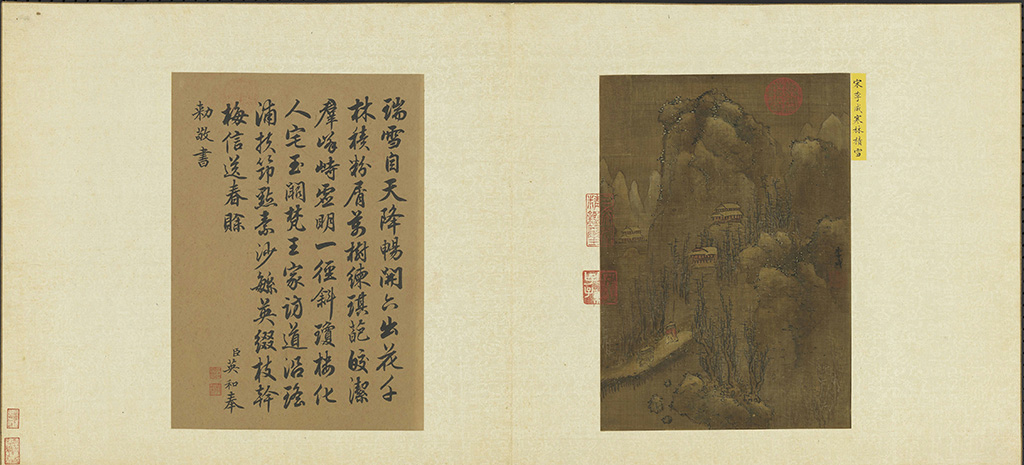 宋李成寒林積雪
瑞雪自天降暢開六出花千
林積粉屑萬樹琪葩皎潔
羣峰峙虛明一徑斜瓊樓化
人宅玉闕梵王家訪道沿瑤
浦扶筇點素沙繁英綴枝幹
梅信送春賒
臣英和奉
勅敬書